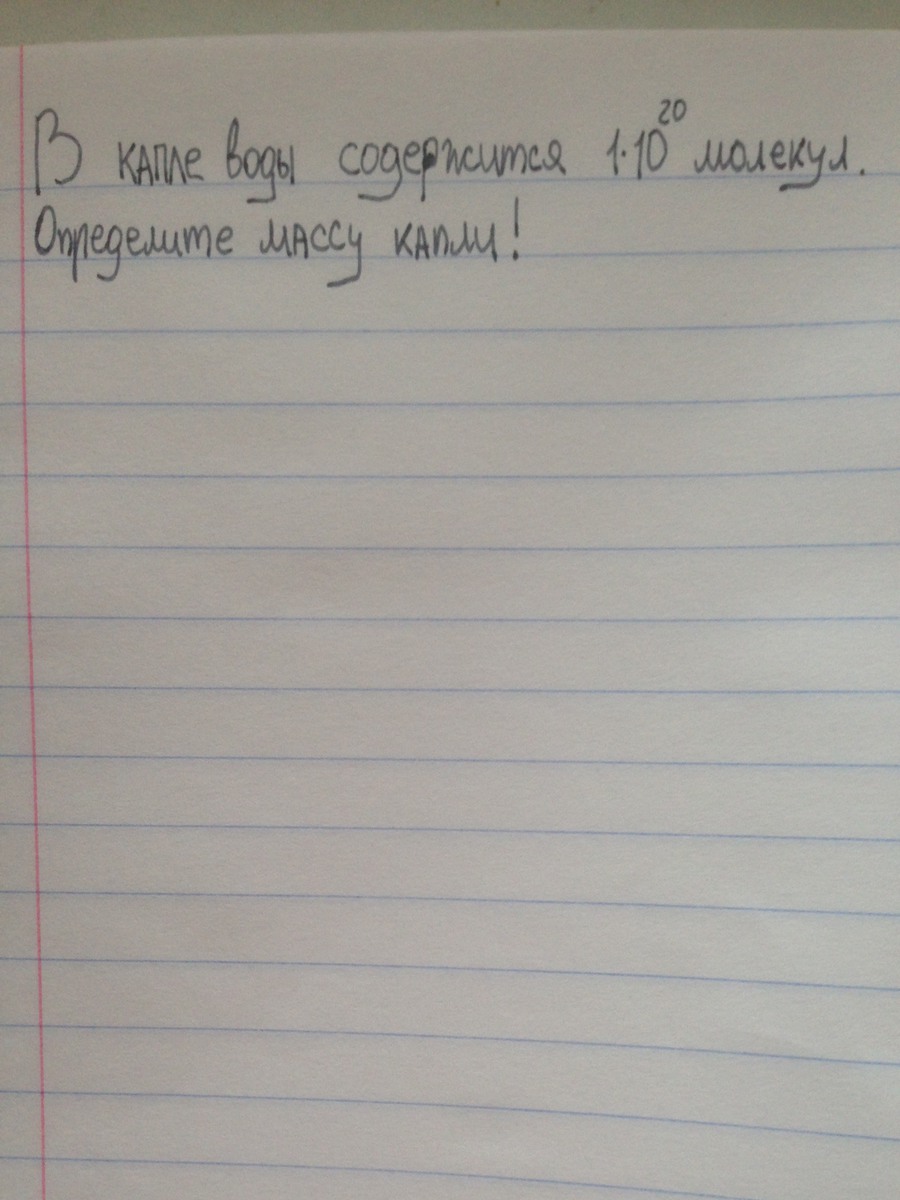 В капле воды содержится 1·10²⁰ молекул.
Определите массу капли!